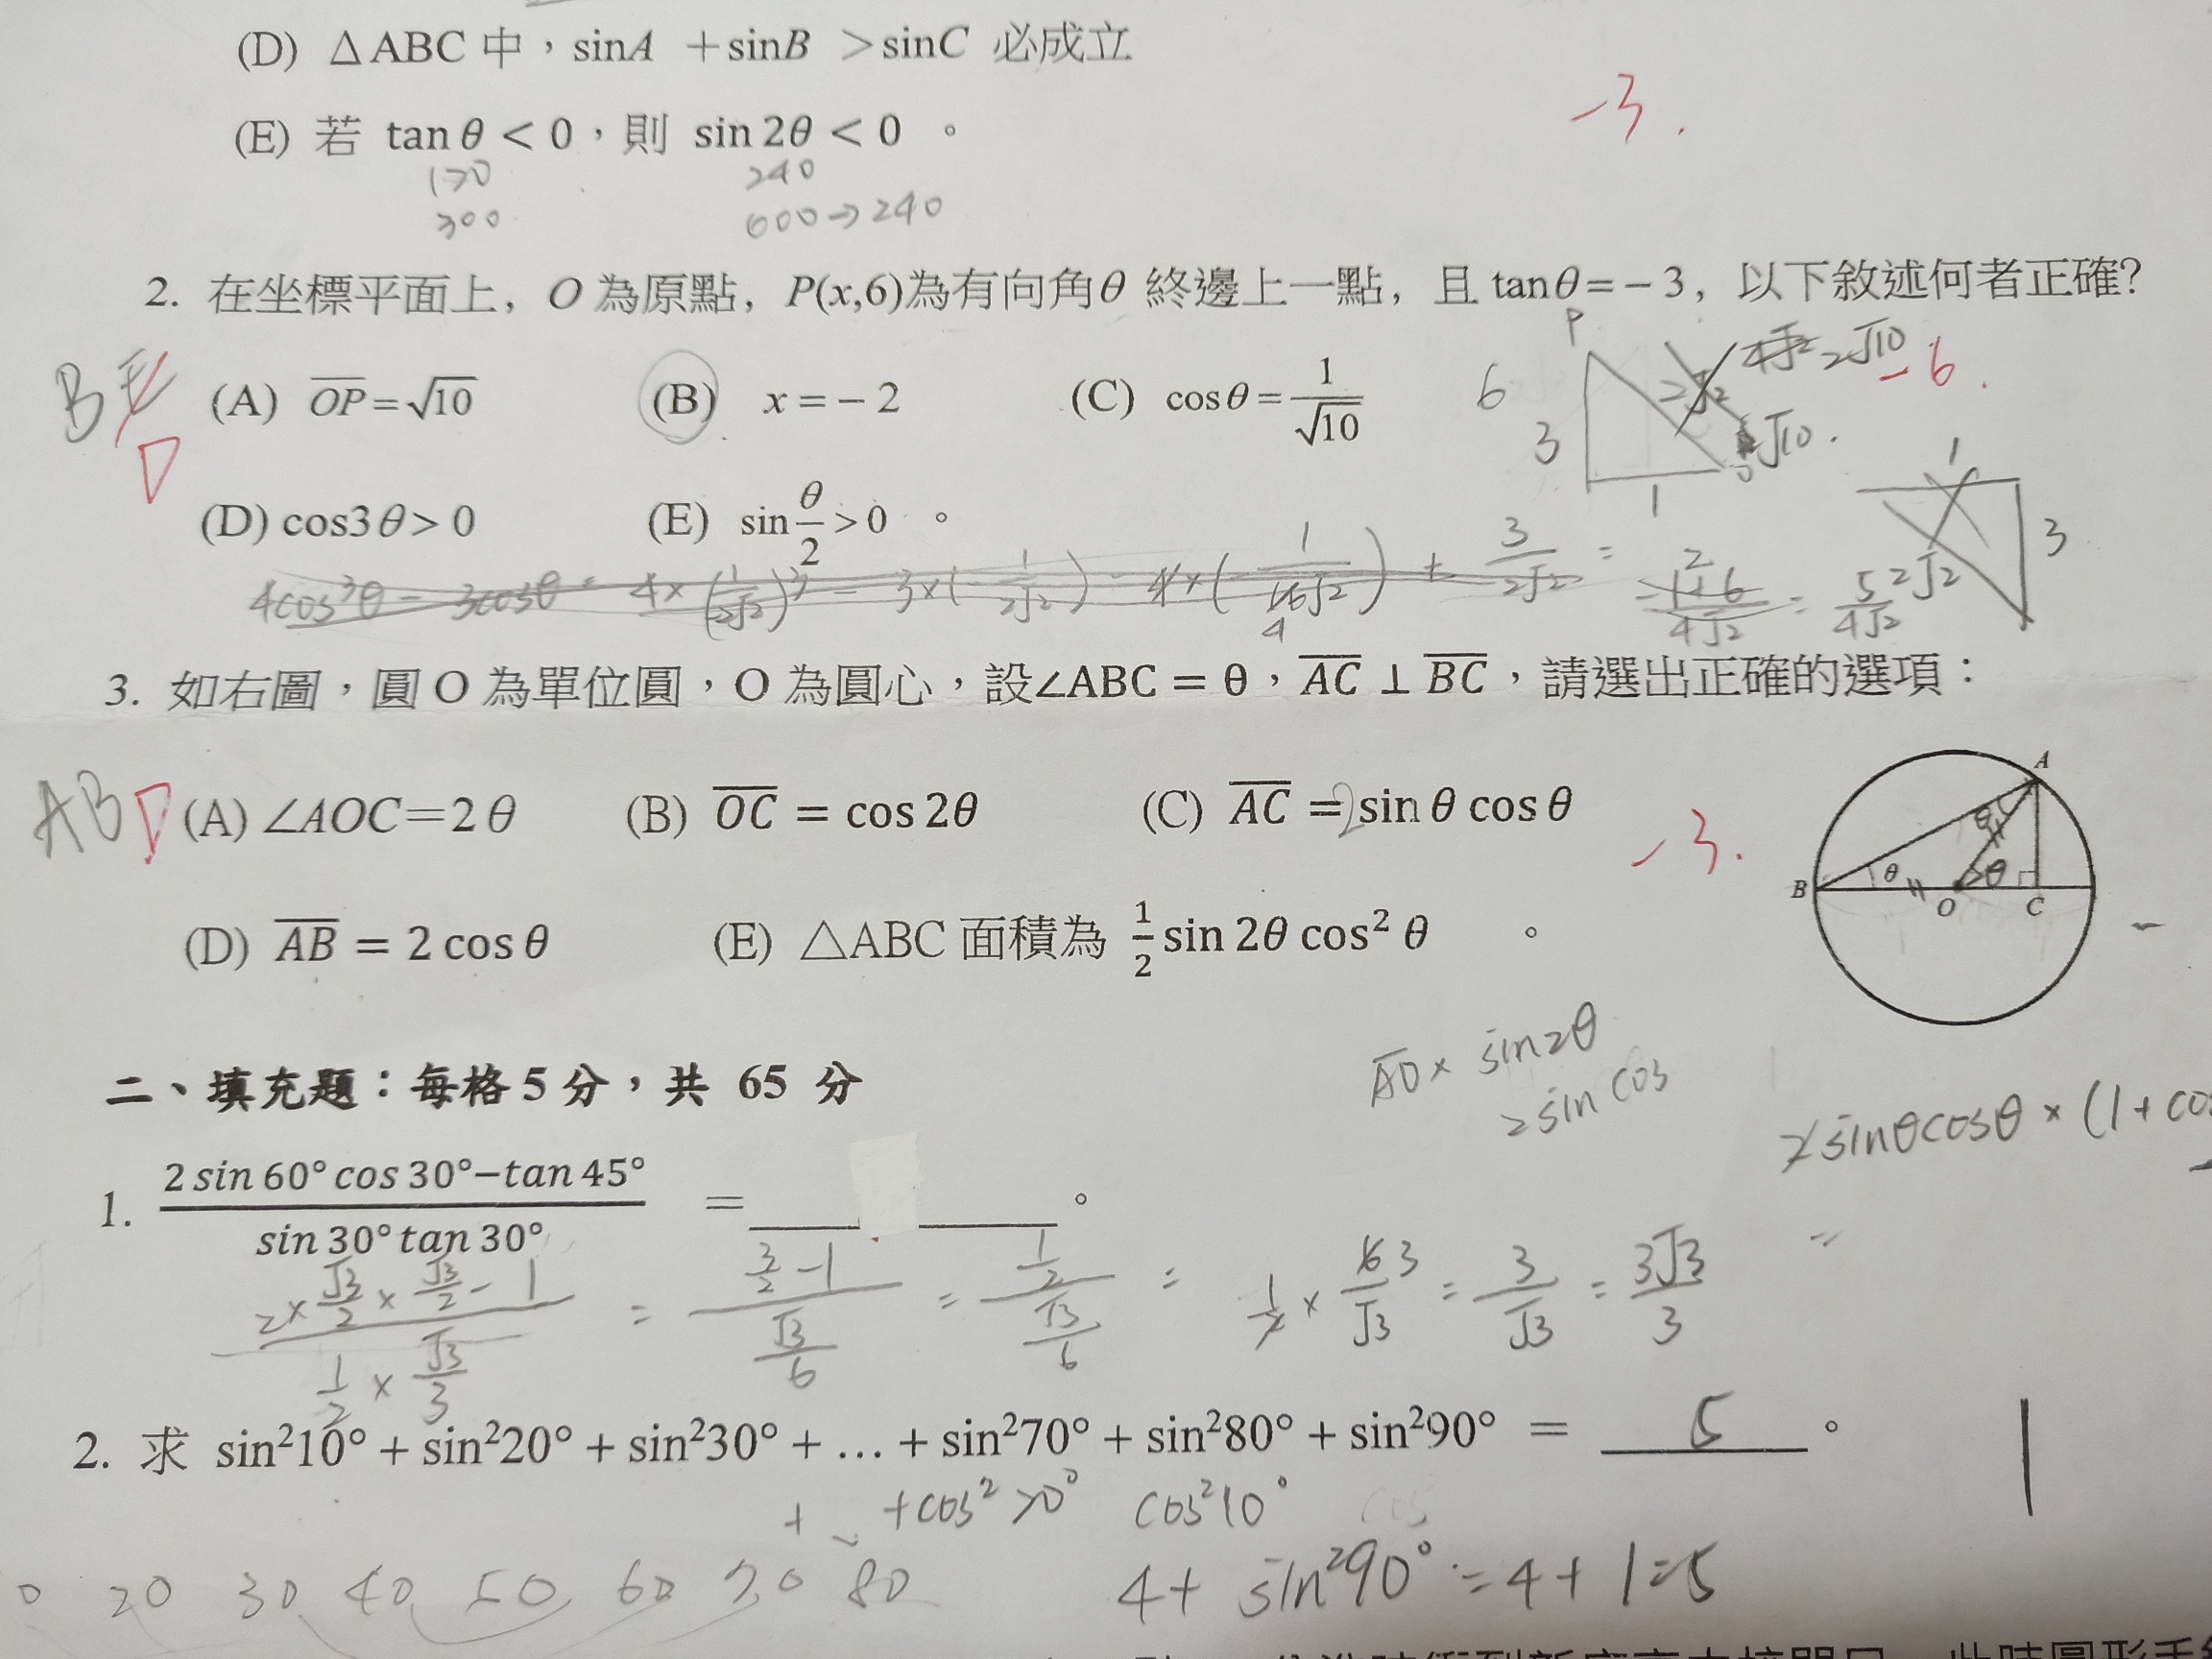 (D) △ABC 中，sinA +sinB >sinC 必成立
-3.
(E) 若 tan θ < 0，則 sin 2θ < 0 。
120 240
300 600→240
2. 在坐標平面上，O 為原點，P(x,6)為有向角θ 終邊上一點，且 tanθ=−3，以下敘述何者正確?
BE D
(A) OP=√10 (B) x=−2 (C) cosθ=1/√10
P 6 3 1 2√2 2√10 √10. -6.
1 3 2√2
(D) cos3θ>0 (E) sin θ/2 >0 。
3. 如右圖，圓 O 為單位圓，O 為圓心，設∠ABC = θ，AC ⊥ BC，請選出正確的選項：
ABD (A) ∠AOC=2θ (B) OC = cos 2θ (C) AC =2sin θ cos θ
-3.
A θ θ 2θ B O C
(D) AB = 2 cos θ (E) △ABC 面積為 1/2 sin 2θ cos² θ 。
AO × sin2θ
2sin cos
2sinθcosθ × (1+
二、填充題：每格 5 分，共 65 分
1. (2 sin 60° cos 30°−tan 45°)/(sin 30° tan 30°) = 。
(2×√3/2×√3/2-1)/(1/2×√3/3) = (3/2-1)/(√3/6) = (1/2)/(√3/6) = 1/2 × 6/√3 3 = 3/√3 = 3√3/3
=
2. 求 sin²10° + sin²20° + sin²30° + … + sin²70° + sin²80° + sin²90° = 5 。
+ +cos²20° cos²10° cos
20 30 40 50 60 70 80
4+ sin²90° = 4+1=5